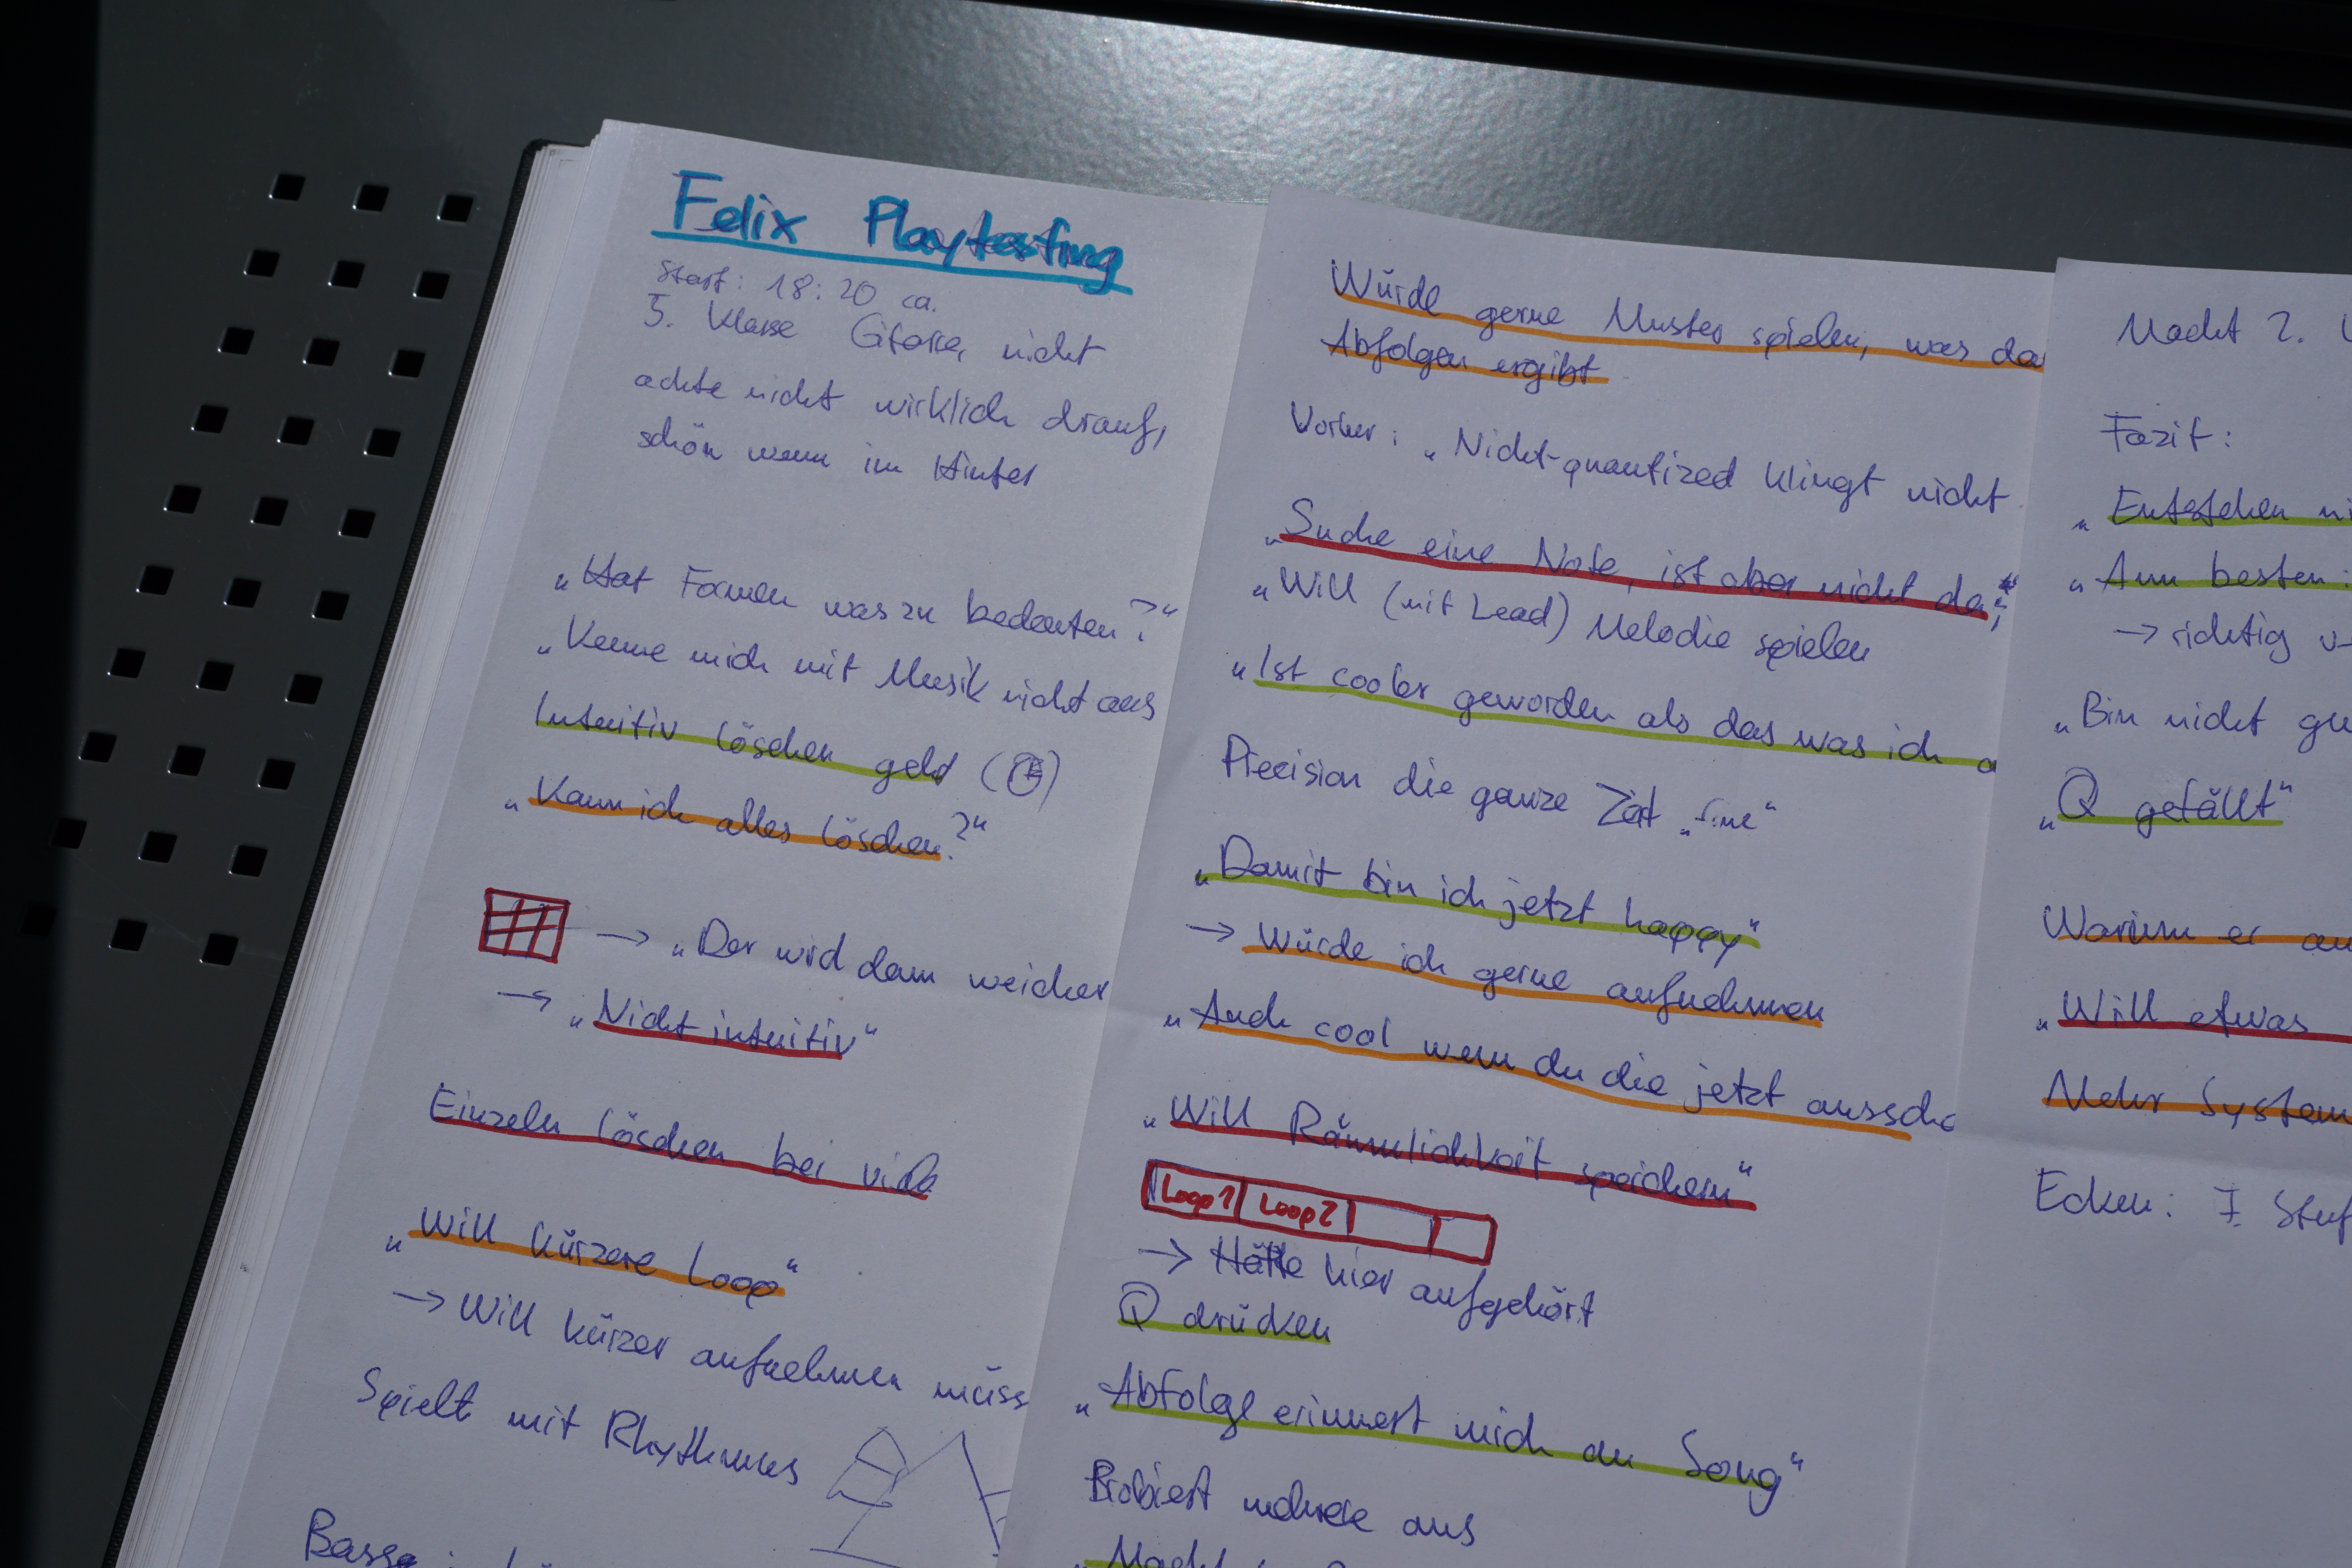 Felix Playtesting
Start: 18:20 ca.
5. Klasse Gitarre, nicht
achte nicht wirklich drauf,
schön wenn im Hinter
„Hat Formen was zu bedeuten?“
„Kenne mich mit Musik nicht aus
Intuitiv löschen geht
„Kann ich alles löschen?“
→ „Der wird dann weicher
→ „Nicht intuitiv“
Einzeln löschen bei viele
„Will kürzere Loop“
→ Will kürzer aufnehmen müss
Spielt mit Rhythmus
Würde gerne Muster spielen, was da
Abfolgen ergibt
Vorher: „Nicht-quantized klingt nicht
„Suche eine Note, ist aber nicht da“
„Will (mit Lead) Melodie spielen
„Ist cooler geworden als das was ich
Precision die ganze Zeit „fine“
„Damit bin ich jetzt happy“
→ Würde ich gerne aufnehmen
„Auch cool wenn du die jetzt
„Will Räumlichkeit speichern“
Loop 1 Loop 2
→ Hätte hier aufgehört
Q drücken
„Abfolge erinnert mich an Song“
Probiert mehrere aus
Macht 2.
Fazit:
„Entstehen
„Am besten:
→ richtig
„Bin nicht
„Q gefällt“
Warum er
„Will etwas
Mehr System
Ecken: